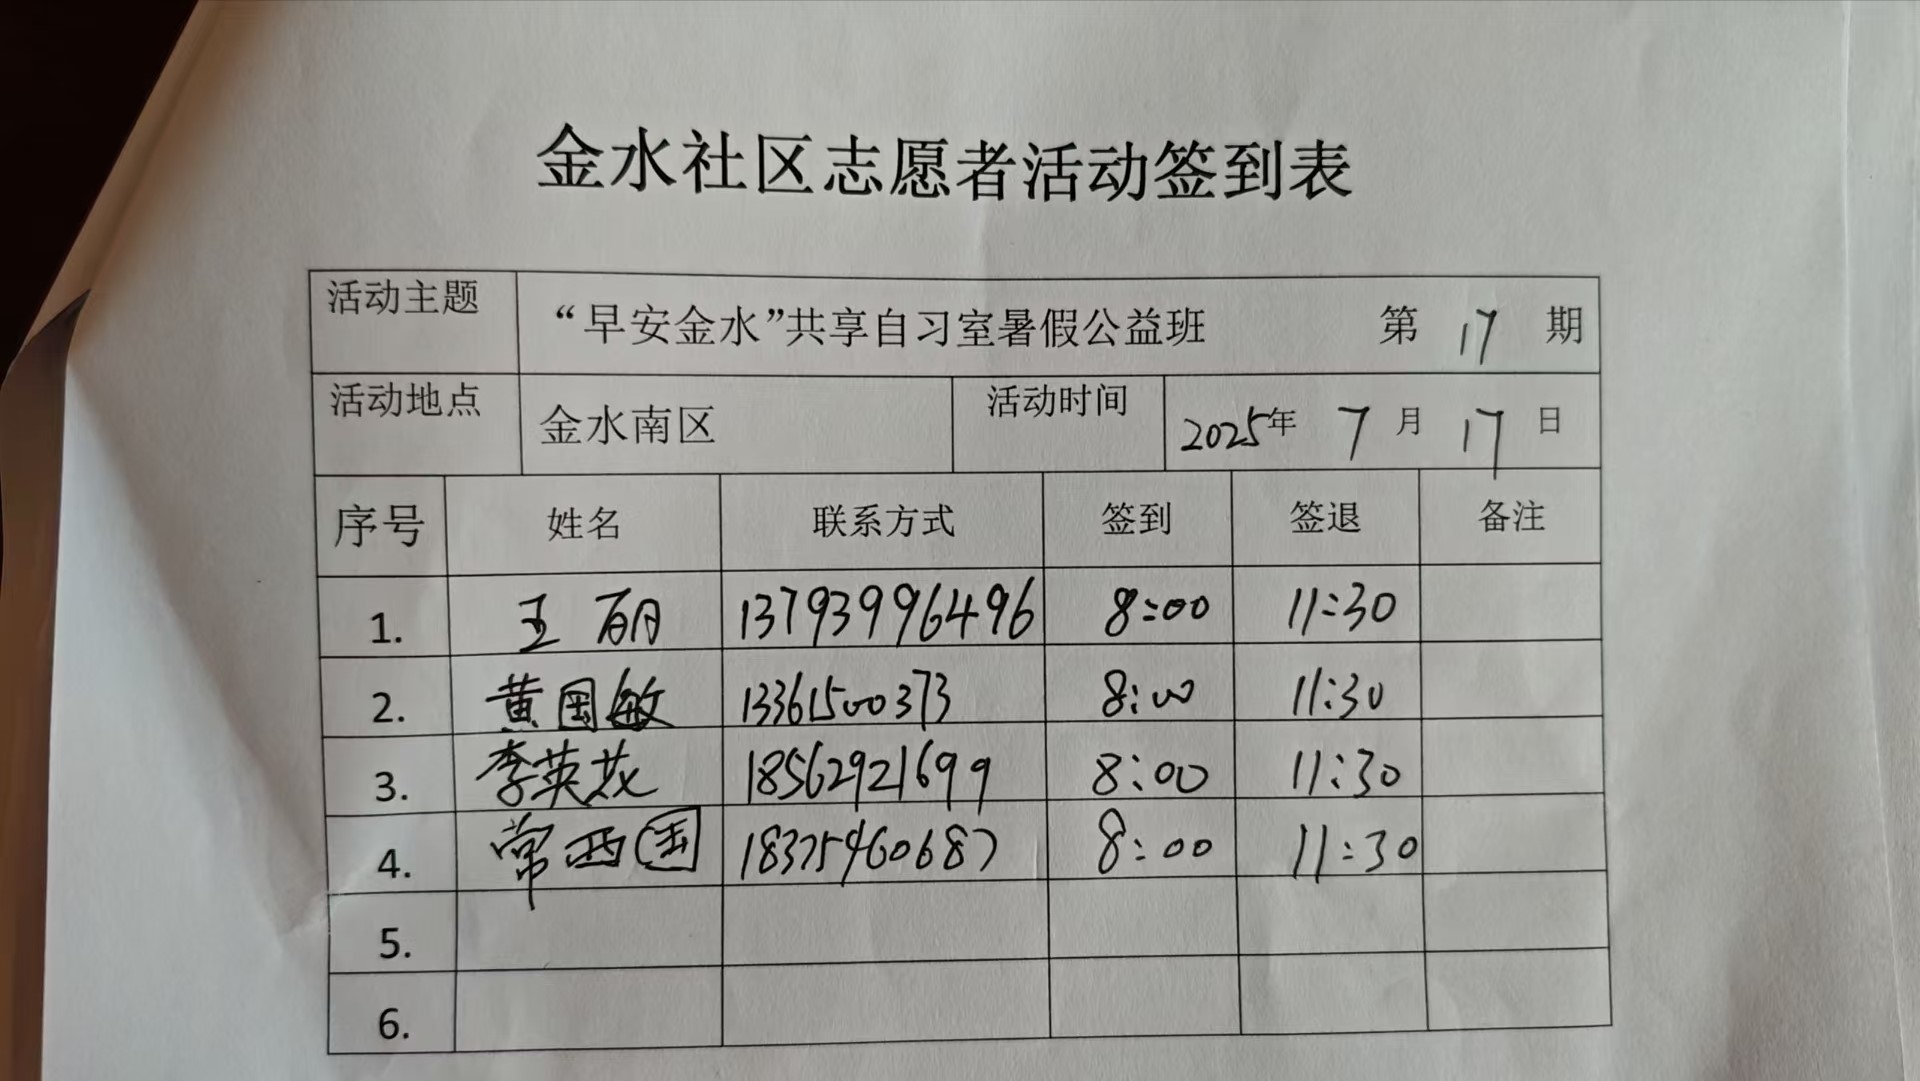 金水社区志愿者活动签到表
活动主题 “早安金水”共享自习室暑假公益班 第 17 期
活动地点 金水南区 活动时间 2025年 7 月 17 日
序号 姓名 联系方式 签到 签退 备注
1. 王丽 13793996496 8:00 11:30
2. 黄国敏 13361500373 8:00 11:30
3. 李英花 18562921699 8:00 11:30
4. 常西国 18375460687 8:00 11:30
5.
6.